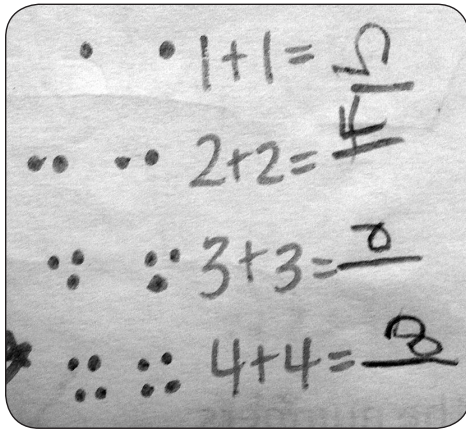 1+1=2
2+2=4
3+3=
4+4=8